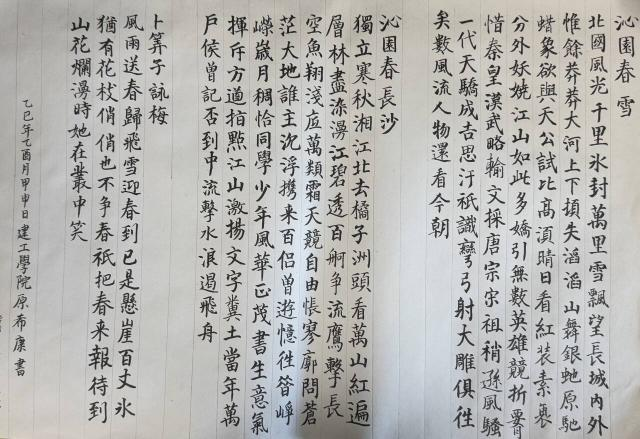 沁園春 雪
北國風光千里氷封萬里雪飄望長城内外
惟餘莽莽大河上下頓失滔滔山舞銀虵原馳
蜡象欲與天公試比高湏晴日看紅装素裹
分外妖娆江山如此多嬌引無數英雄競折要
惜秦皇漢武略輸文採唐宗宋祖稍遜風騷
一代天驕成吉思汗祇識彎弓射大雕俱往
矣數風流人物還看今朝
沁園春長沙
獨立寒秋湘江北去橘子洲頭看萬山紅遍
層林盡涤漫江碧透百舸争流鷹擊長
空魚翔淺底萬類霜天競自由悵寥廓問蒼
茫大地誰主沈浮携来百侣曾遊憶往昔崢
嶸嵗月稠恰同學少年風華正茂書生意氣
揮斥方遒指點江山激揚文字糞土當年萬
戶侯曾記否到中流擊水浪遏飛舟
卜筭子詠梅
風雨送春歸飛雪迎春到已是懸崖百丈氷
猶有花杖俏俏也不争春祇把春来報待到
山花爛漫時她在叢中笑
乙巳年乙酉月甲申日建工學院原希康書